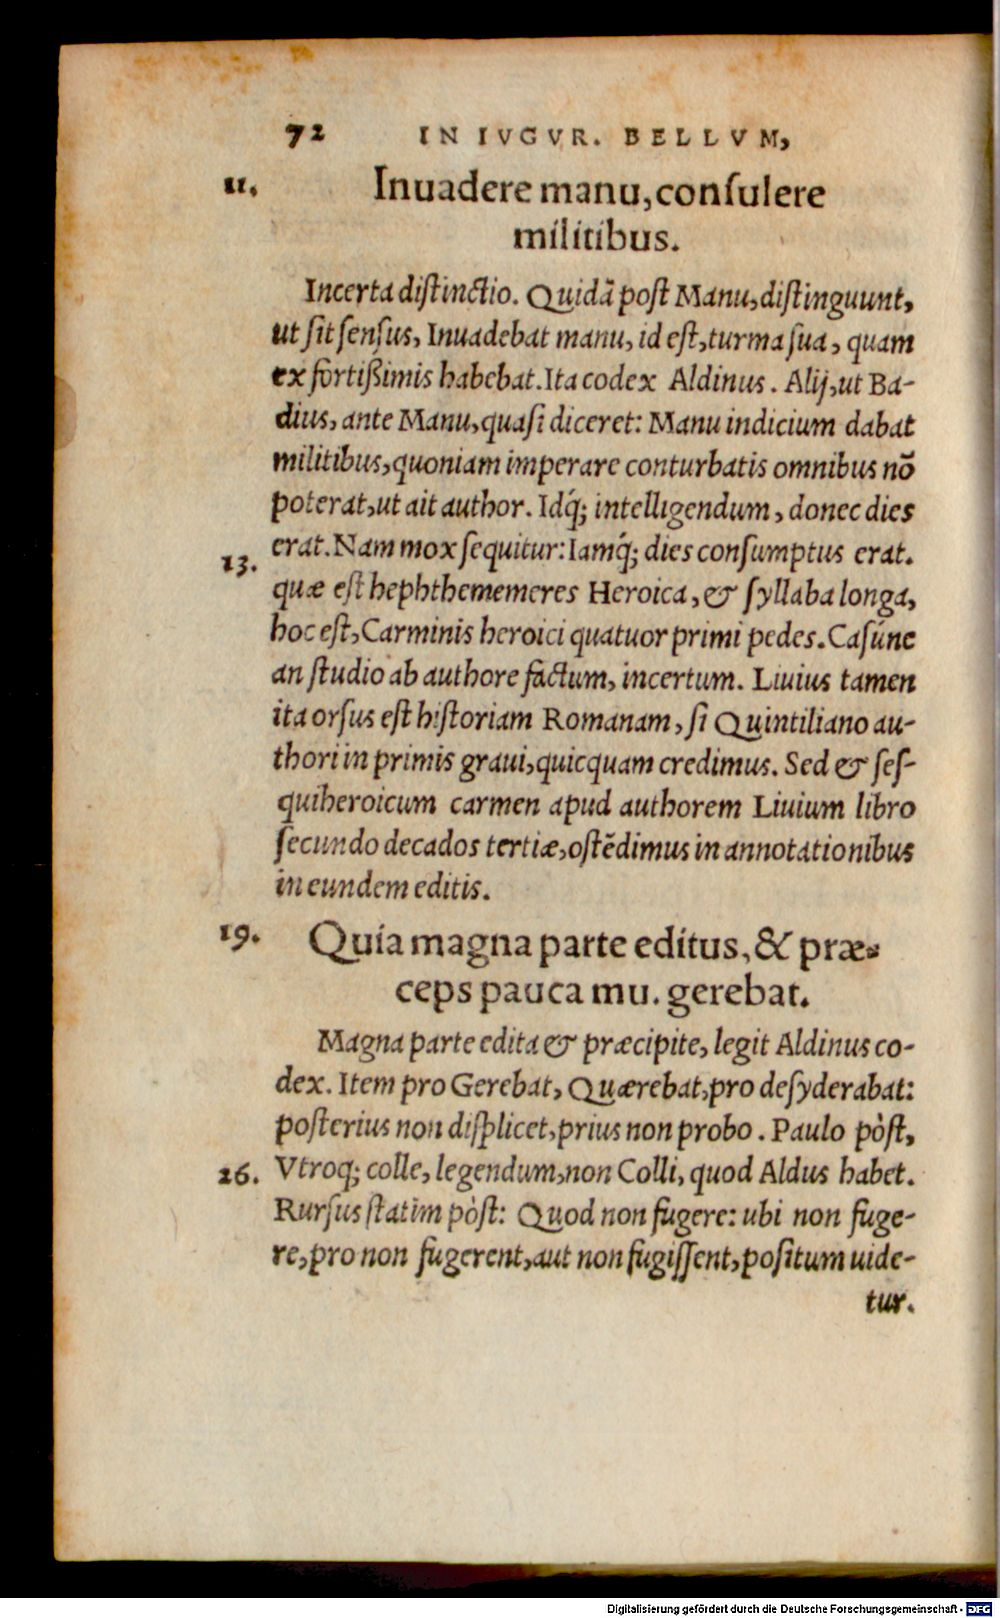 72 IN IVGVR. BELLVM,
11. Inuadere manu, conſulere
militibus.
Incerta diſtinctio. Quidã poſt Manu, diſtinguunt,
ut ſit ſenſus, Inuadebat manu, id eſt, turma ſua, quam
ex fortiſſimis habebat. Ita codex Aldinus. Alij, ut Ba-
dius, ante Manu, quaſi diceret: Manu indicium dabat
militibus, quoniam imperare conturbatis omnibus nõ
poterat, ut ait author. Idq́; intelligendum, donec dies
13. erat. Nam mox ſequitur: Iamq́; dies conſumptus erat.
quæ eſt hephthememeres Heroica, & ſyllaba longa,
hoc eſt, Carminis heroici quatuor primi pedes. Caſúne
an ſtudio ab authore factum, incertum. Liuius tamen
ita orſus eſt hiſtoriam Romanam, ſi Quintiliano au-
thori in primis graui, quicquam credimus. Sed & ſeſ-
quiheroicum carmen apud authorem Liuium libro
ſecundo decados tertiæ, oſtẽdimus in annotationibus
in eundem editis.
19. Quia magna parte editus, & præ-
ceps pauca mu. gerebat.
Magna parte edita & præcipite, legit Aldinus co-
dex. Item pro Gerebat, Quærebat, pro deſyderabat:
poſterius non diſplicet, prius non probo. Paulo pòſt,
26. Vtroq; colle, legendum, non Colli, quod Aldus habet.
Rurſus ſtatim pòſt: Quod non fugere: ubi non fuge-
re, pro non fugerent, aut non fugiſſent, poſitum uide-
tur.
Digitalisierung gefördert durch die Deutsche Forschungsgemeinschaft - DFG